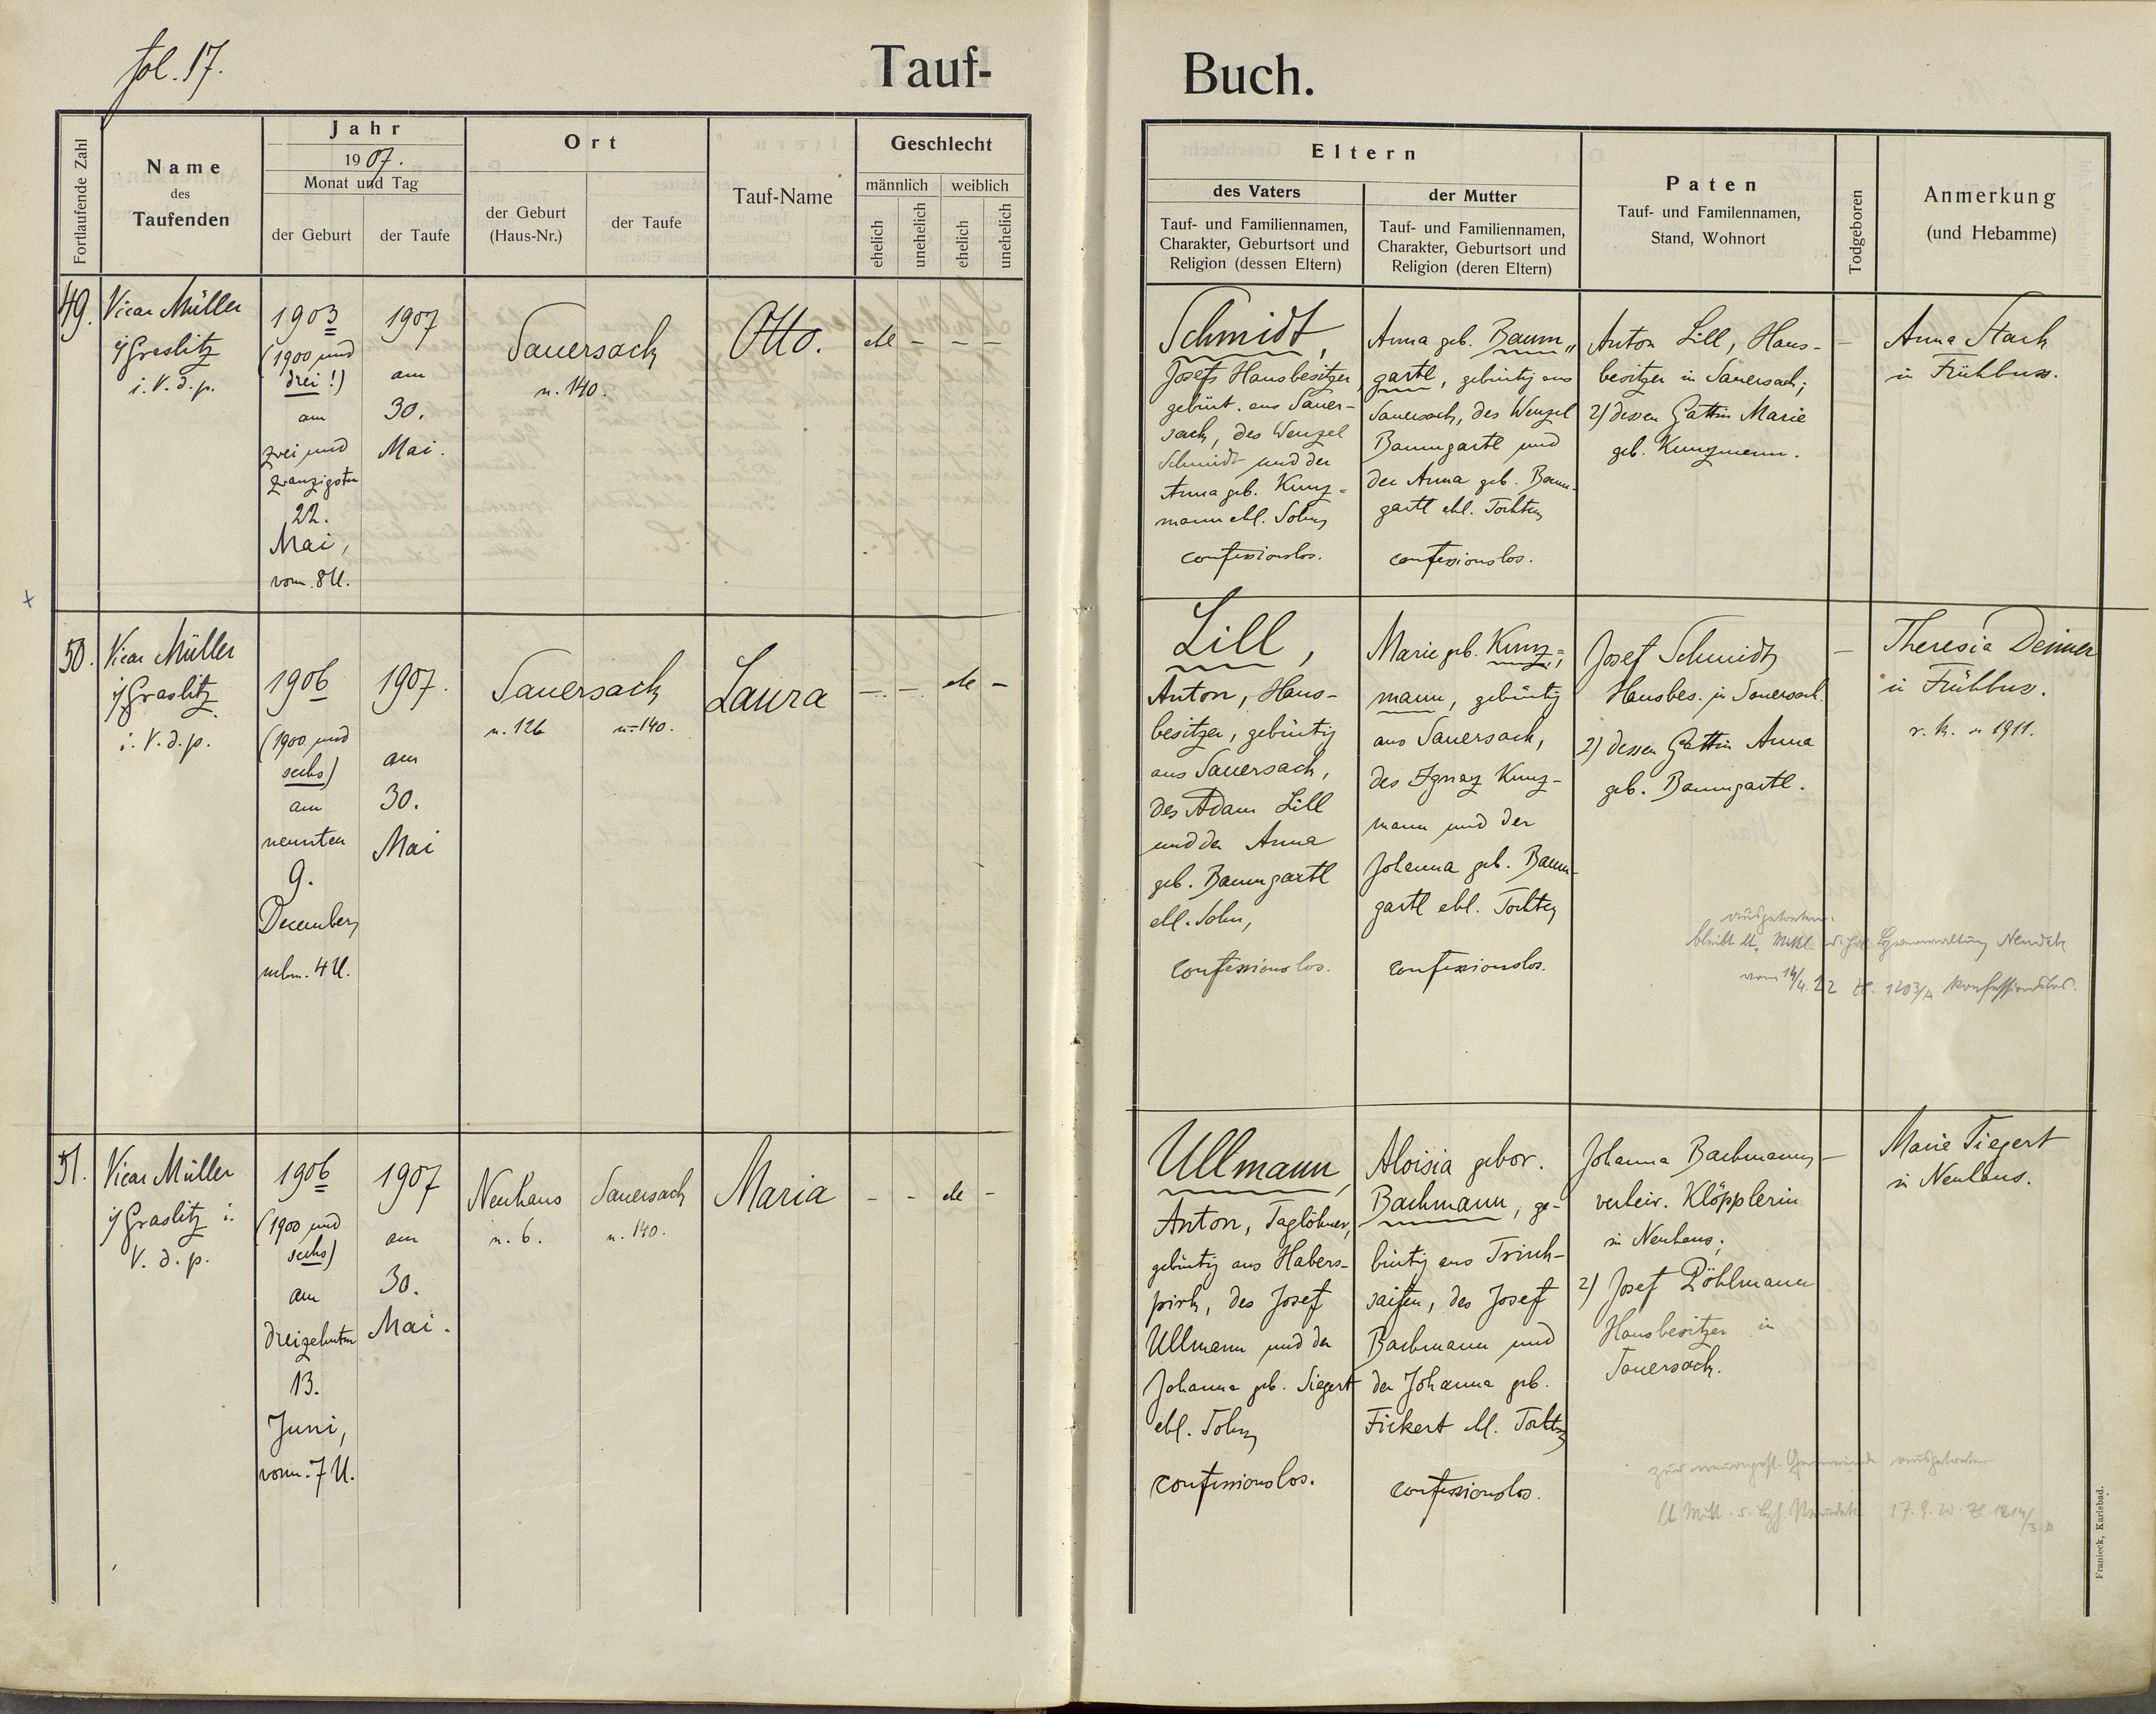 fol. 17.
Tauf-
Buch.
Fortlaufende Zahl
Name
des
Taufenden
Jahr
1907.
Monat und Tag
der Geburt
der Taufe
Ort
der Geburt
(Haus-Nr.)
der Taufe
Tauf-Name
Geschlecht
männlich
weiblich
ehelich
unehelich
ehelich
unehelich
Eltern
des Vaters
Tauf- und Familiennamen,
Charakter, Geburtsort und
Religion (dessen Eltern)
der Mutter
Tauf- und Familiennamen,
Charakter, Geburtsort und
Religion (deren Eltern)
Paten
Tauf- und Familennamen,
Stand, Wohnort
Todgeboren
Anmerkung
(und Hebamme)
49.
Vicar Müller
i/Graslitz
i. V. d. p.
1903
(1900 und
drei!)
am
zwei und
zwanzigsten
22.
Mai,
vorm. 8 U.
1907
am
30.
Mai.
Sauersack
n. 140.
Otto.
ehl
–
–
–
Schmidt,
Josef, Hausbesitzer,
gebürt. aus Sauer-
sack, des Wenzel
Schmidt und der
Anna geb. Kunz=
mann ehl. Sohn,
confessionslos.
Anna geb. Baum„
gartl, gebürtig aus
Sauersack, des Wenzel
Baumgartl und
der Anna geb. Baum-
gartl ehl. Tochter,
confessionslos.
Anton Lill, Haus-
besitzer in Sauersack;
2) dessen Gattin Marie
geb. Kunzmann.
–
Anna Stark
in Frühbuss.
50.
Vicar Müller
i/Graslitz
i. V. d. p.
1906
(1900 und
sechs)
am
neunten
9.
December,
nchm. 4 U.
1907.
am
30.
Mai
Sauersack
n. 126
n. 140.
Laura
–
–
ehl
–
Lill,
Anton, Haus-
besitzer, gebürtig
aus Sauersack,
des Adam Lill
und der Anna
geb. Baumgartl
ehl. Sohn,
confessionslos.
Marie geb. Kunz=,
mann, gebürtig
aus Sauersack,
des Ignaz Kunz-
mann und der
Johanna geb. Baum-
gartl ehl. Tochter,
confessionslos.
Josef Schmidt,
Hausbes. in Sauersack.
2) dessen Gattin Anna
geb. Baumgartl.
–
Theresia Deimer
in Frühbus.
r. k. 1911.
ausgetreten.
bleibt lt. Neudek
vom 14/4. 22 Zl. 1203/A konfessionslos.
51.
Vicar Müller
i/Graslitz i.
V. d. p.
1906
(1900 und
sechs)
am
dreizehnten
13.
Juni,
vorm. 7 U.
1907
am
30.
Mai.
Neuhaus
n. 6.
Sauersack
n. 140.
Maria
–
–
ehl
–
Ullmann,
Anton, Taglöhner,
gebürtig aus Habers-
pirk, des Josef
Ullmann und der
Johanna geb. Siegert
ehl. Sohn,
confessionslos.
Aloisia gebor.
Bachmann, ge-
bürtig aus Trink-
saifen, des Josef
Bachmann und
der Johanna geb.
Fickert ehl. Tochter,
confessionslos.
Johanna Bachmann,
verheir. Klöpplerin
in Neuhaus;
2) Josef Pöhlmann
Hausbesitzer in
Sauersack.
–
Marie Siegert
in Neuhaus.
Gemeinde ausgetreten
lt Mitt. Neudek 17.9.20
Franieck, Karlsbad.